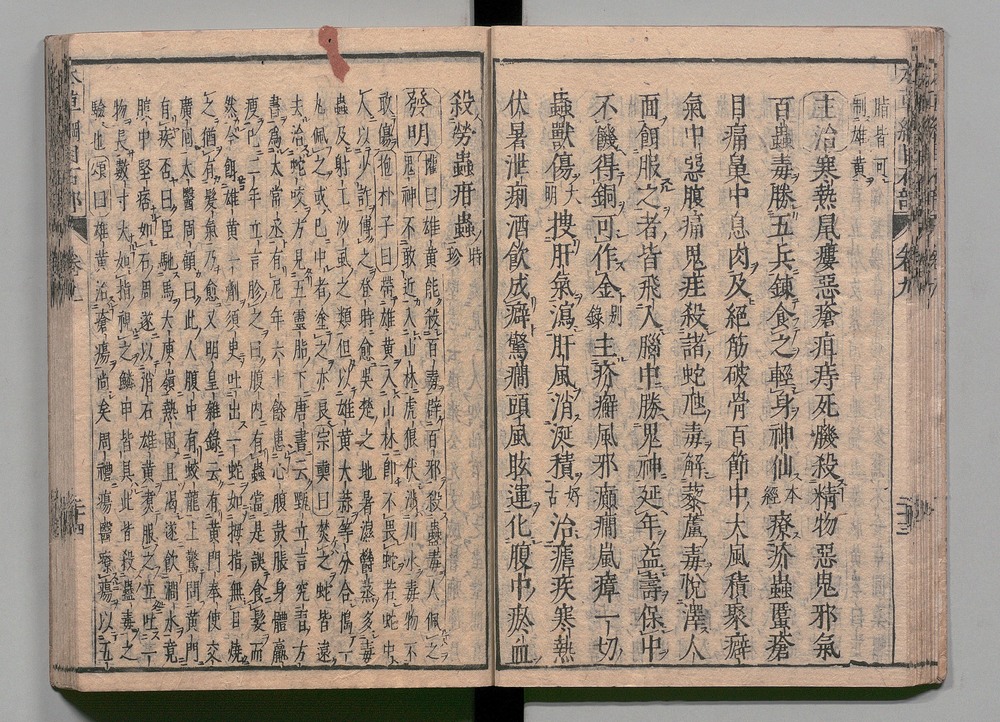 脂皆可
制雄黄
主治寒熱鼠瘻惡瘡疽痔死肌殺精物惡鬼邪氣
百蟲毒勝五兵鍊食之輕身神仙本經療疥蟲䘌瘡
目痛鼻中息肉及絶筋破骨百節中大風積聚癖
氣中惡腹痛鬼疰殺諸蛇虺毒解藜蘆毒悅澤人
面餌服之者皆飛入腦中勝鬼神延年益壽保中
不饑得銅可作金别錄主疥癬風邪癲癇嵐瘴一切
蟲獸傷大明搜肝氣瀉肝風消涎積好古治瘧疾寒熱
伏暑泄痢酒飲成癖驚癇頭風眩運化腹中瘀血
本草綱目石部 卷九
殺勞蟲疳蟲時珍
發明權曰雄黄能殺百毒辟百邪殺蠱毒人佩之
鬼神不敢近入山林虎狼伏涉川水毒物不
敢傷抱朴子曰帶雄黄入山林卽不畏蛇若蛇中
人以少許傅之登時愈吳楚之地暑濕鬱蒸多毒
蟲及射工沙虱之類但以雄黄大蒜等分合擣一
丸佩之或已中者塗之亦良宗奭曰焚之蛇皆遠
去治蛇咬方見五靈脂下唐書云甄立言究習方
書爲太常丞有尼年六十餘患心腹鼓脹身體羸
瘦已二年立言胗之曰腹內有蟲當是誤食髮而
然令餌雄黄一劑須臾吐出一蛇如拇指無目燒
之猶有髮氣乃愈又明皇雜錄云有黄門奉使交
廣回太醫周顧曰此人腹中有蛟龍上驚問黄門
有疾否曰臣馳馬大庾嶺熱困且渴遂飲澗水竟
腹中堅痞如石周遂以消石雄黄煮服之立吐一
物長數寸大如指視之鱗甲皆具此皆殺蠱毒之
驗也頌曰雄黄治瘡瘍尚矣周禮瘍醫療瘍以五
本草綱目石部 卷九